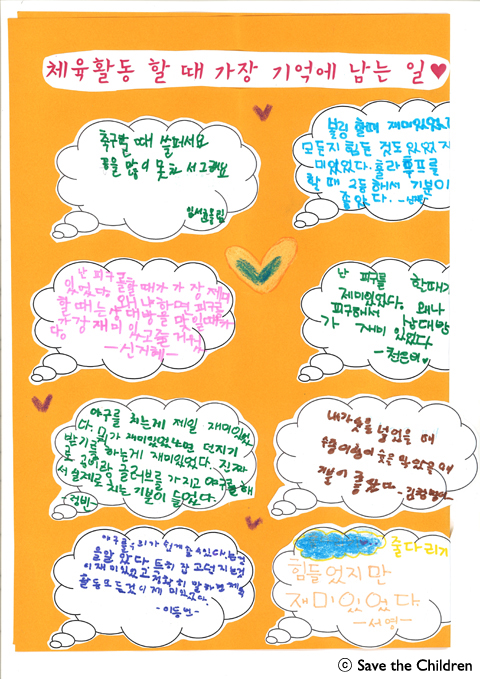 체육활동 할 때 가장 기억에 남는 일♥
축구할 때 슬퍼서요
골을 많이 못 해서 그래요
볼링 할때 재미있었고
모든지 힘든 것도 있었지
미있었다. 훌라후프를
할 때 2등해서 기분이
좋았다.
난 피구를할때가 가장 재미
있었다. 왜냐하면 피구를
할때는 상대방을 맞일때가
가장 재미있고 즐거웠
다.
난 피구를 할때가
재미있었다. 왜냐
피구에서 상대방
가 재미있었다
야구를 치는게 제일 재미있었
다. 뭐가 재미있었냐면 던지기
받기를 하는게 재미있었다. 진짜
로 공이랑 글러브를 가지고 야구를 해
서 실제로 치는 기분이 들었다.
내가 슛을 넣었을 때
슛을 막았을 때
기분이 좋았다.
야구를 우리가 쉽게 할 수 있다는것
을 알았다 특히 잡고 던지는것
이 재미있었고 정확히 말하면 체육
활동 모든것이 재미있었다.
줄다리기
힘들었지만
재미있었다.
-서영-
© Save the Children